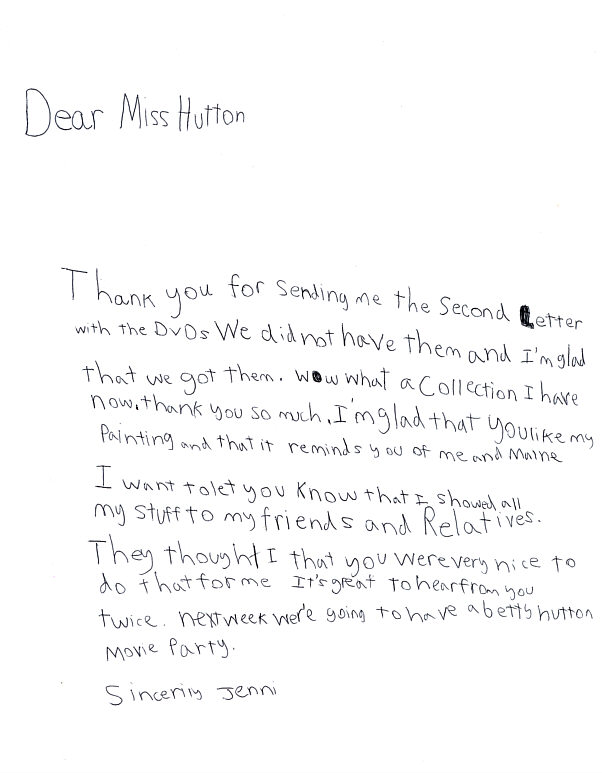 Dear Miss Hutton
Thank you for sending me the second Letter
with the DVDs We did not have them and I'm glad
that we got them. wow what a Collection I have
now. thank you so much. I'm glad that you like my
Painting and that it reminds you of me and Maine
I want to let you know that I showed all
my stuff to my friends and Relatives.
They thought I that you were very nice to
do that for me It's great to hear from you
twice. next week were're going to have a betty hutton
Movie Party.
Sincerily Jenni